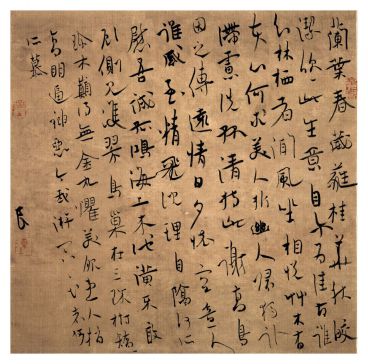 蘭葉春葳蕤桂華秋皎
潔欣欣此生意自爾為佳節誰
知林栖者聞風坐相悅草木有本
心何求美人折幽人歸獨臥
滯慮洗孤清持此謝高鳥
因之傳遠情日夕懷空意人
誰感至精飛沈理自隔何所
慰吾誠孤鴻海上來池潢不敢
顧側見雙翠鳥巢在三珠樹矯
矯珍木巔得無金丸懼美服患人指
高明逼神惡今我游冥冥弋者何
所慕